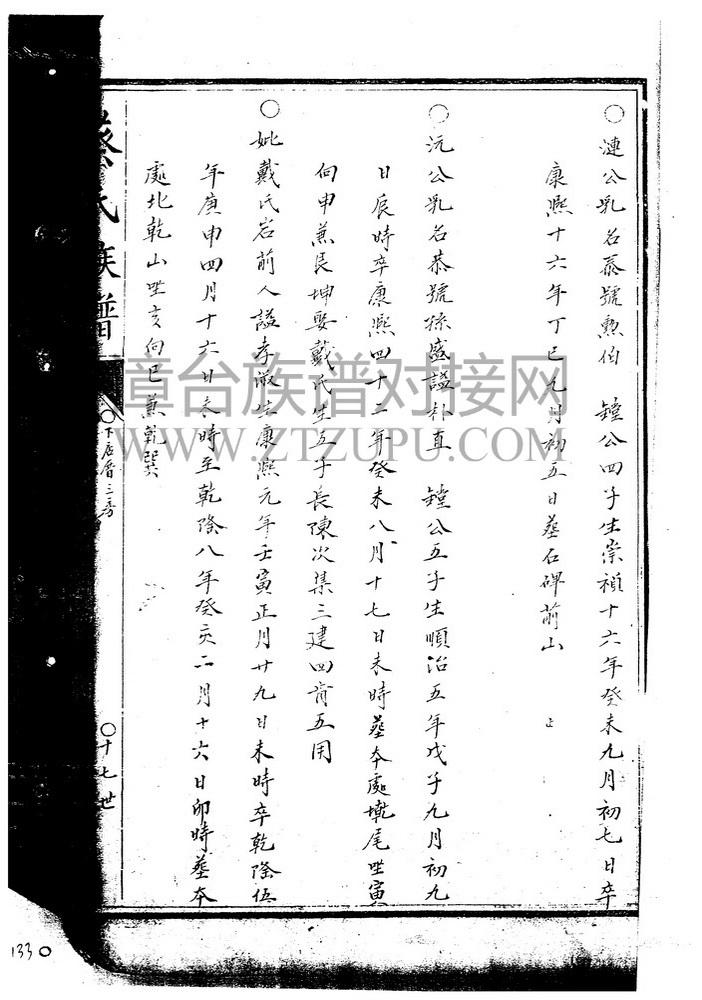 ○漣公乳名泰號勲伯 鏜公四子生崇禎十六年癸未九月初七日卒
康熙十六年丁巳九月初五日塟石碑前山 止
○沅公乳名恭號孫盛謚朴直 鏜公五子生順治五年戊子九月初九
日辰時卒康熙四十二年癸未八月十七日未時塟本處墘尾坐寅
向申兼艮坤娶戴氏生五子長陳次集三建四育五用
○妣戴氏岩前人謚孝淑生康熙元年壬寅正月廿九日未時卒乾隆伍
年庚申四月十六日未時至乾隆八年癸亥二月十六日卯時塟本
處北乾山坐亥向巳兼乾巽
蔡氏族譜
○下店
三房
○十七世
章台族谱对接网
WWW.ZTZUPU.COM
1330